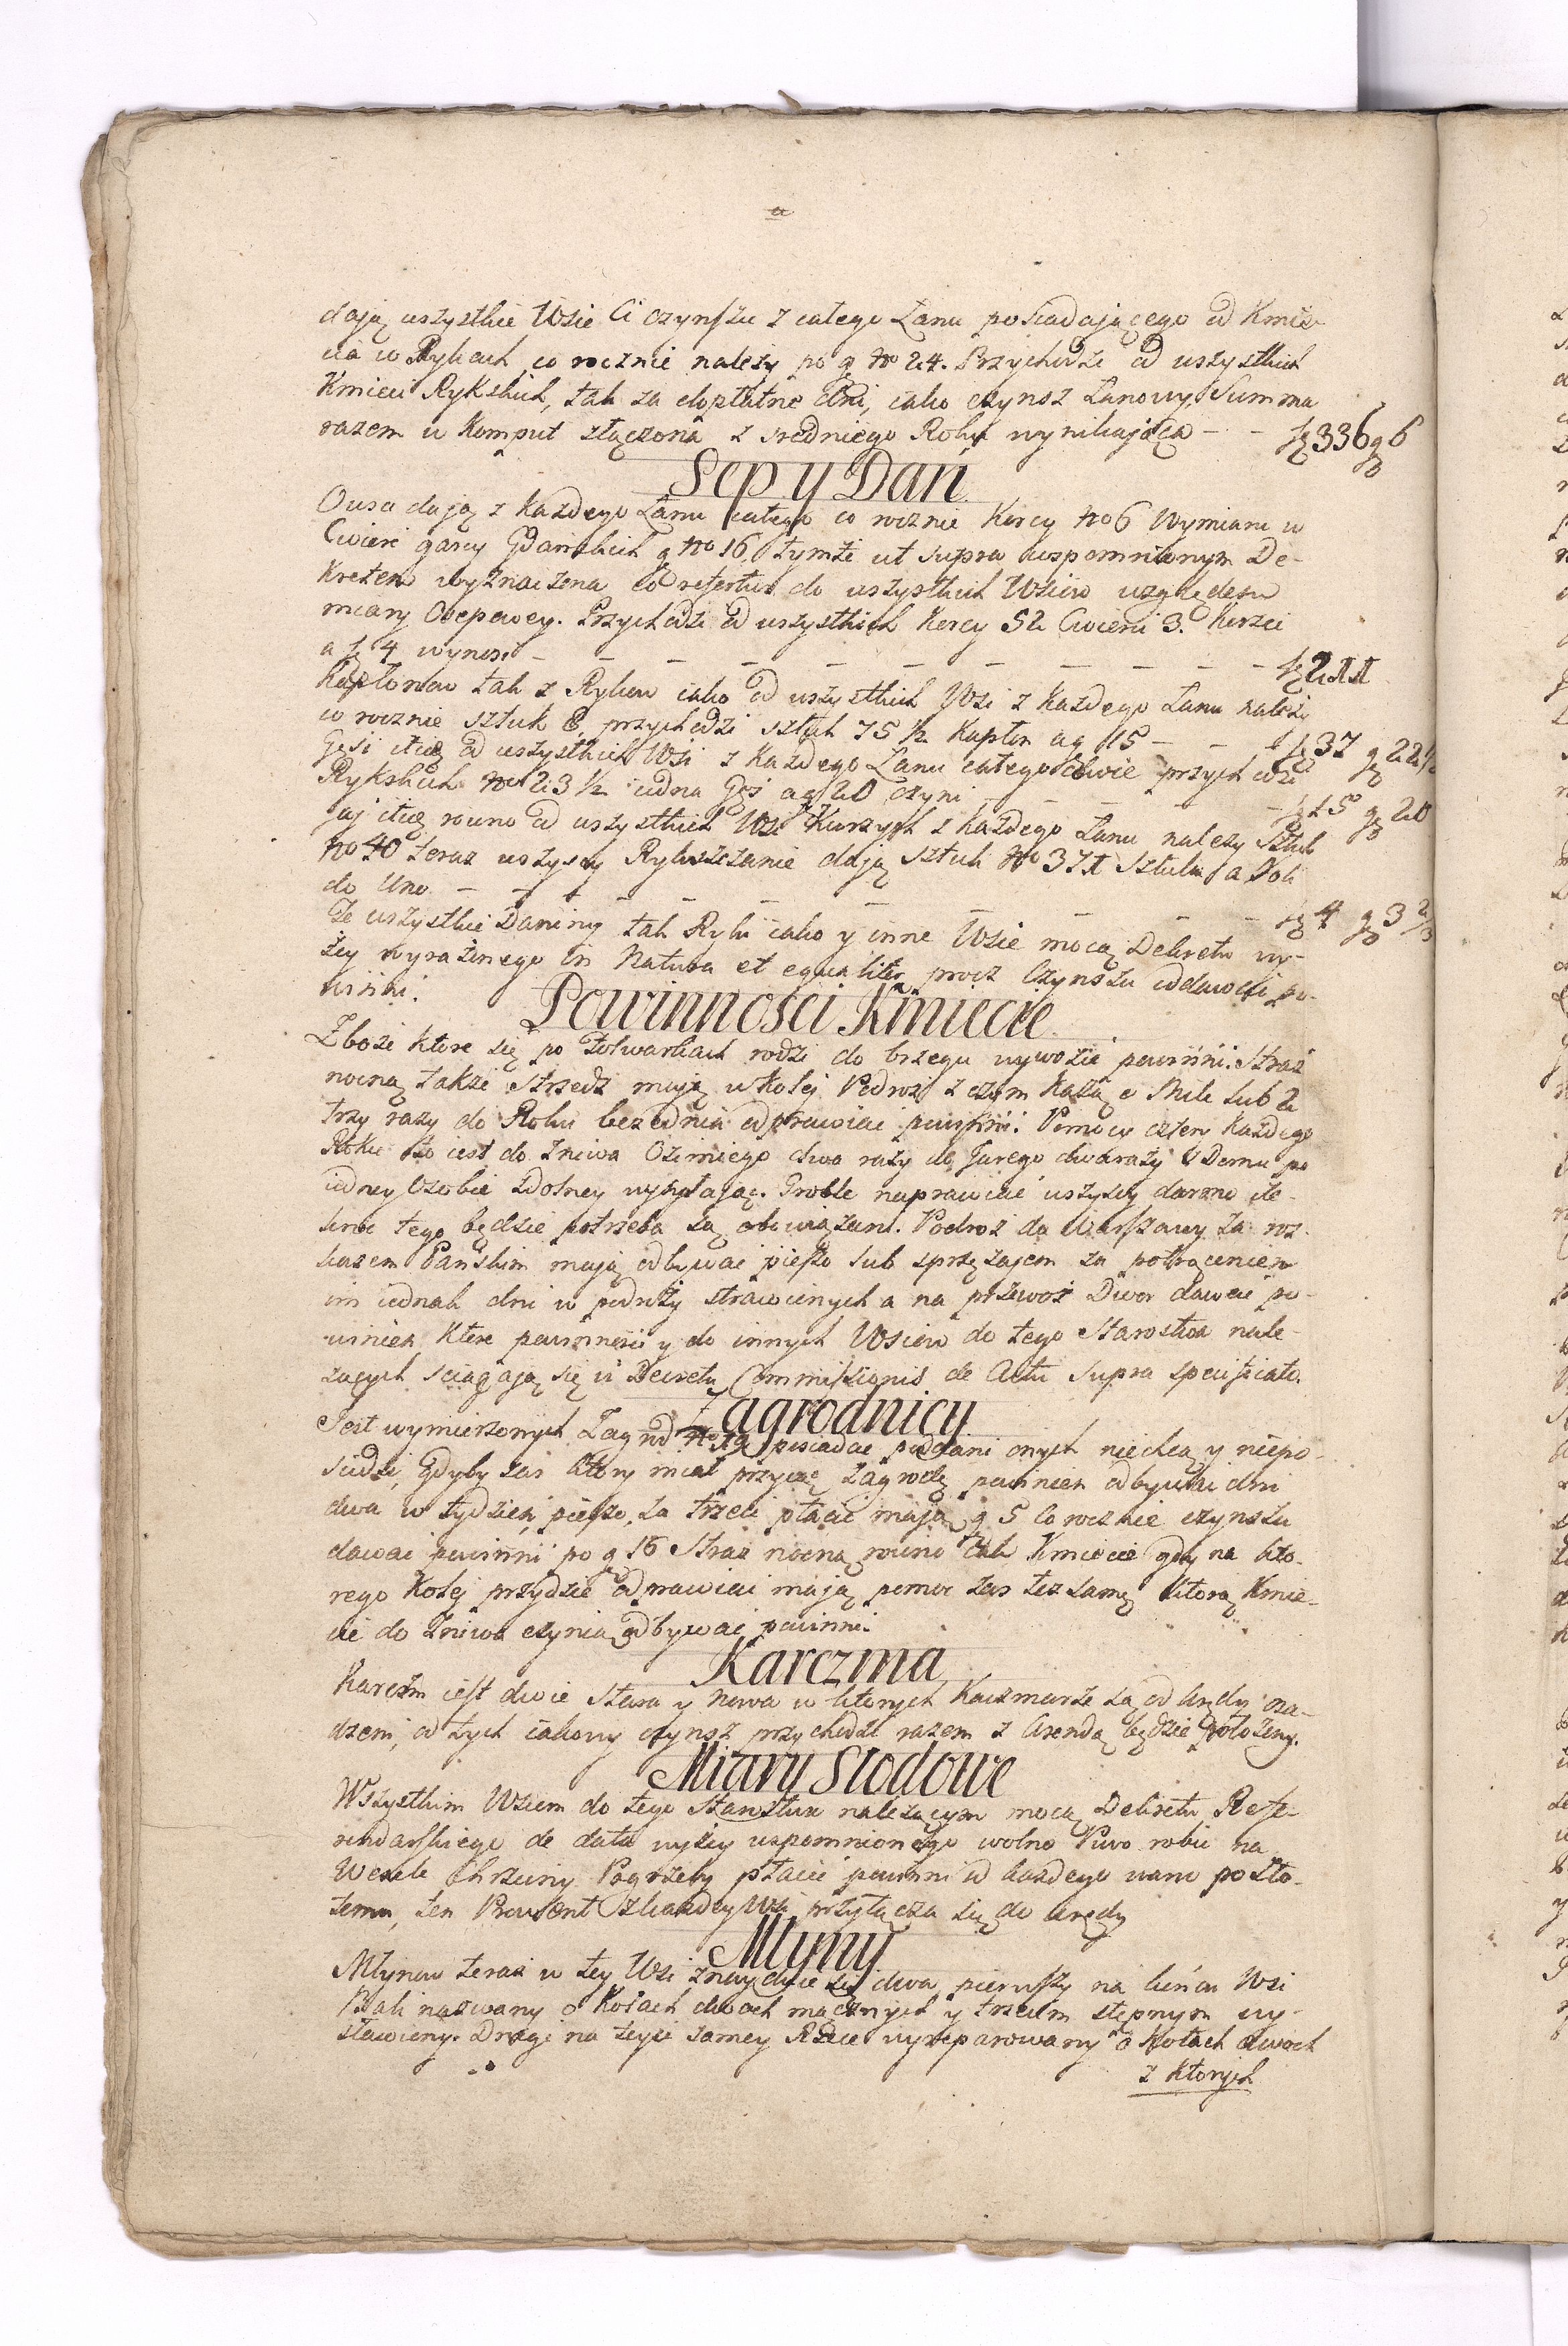 dają wszystkie Wsie Ci czynszu z całego Łanu posiadającego od Kmie-
cia w Rykach co rocznie należy po g No 24. Przychodzi od wszystkich
Kmieci Rykskich, tak za dopłatne dni, iako czynsz Łanowy, Summa
razem w komput złączona z sredniego Roku wynikająca - - fz 336 g 6
Sep y Dań
Owsa dają z każdego Łanu całego co rocznie Korcy No 6 Wymiaru w
Cwierć garcy Gdańskich g No 16, tymże ut supra wspomnianym De-
kretem wyznaczona co refertur do wszystkich Wsiów względem
miary Osepowey. Przychodzi od wszystkich Korcy 52 Cwierci 3. Korzec
a fz 4 wynosi - - - - - - - - - - fz 211
Kapłonow tak z Rykow iako od wszystkich Wsi z każdego Łanu należy
co rocznie sztuk 6, przychodzi sztuk 75 ½ Kapłon a g 15 - - - fz 37 g 22 ½
Gęsi itcę od wszystkich Wsi z każdego Łanu całego dwie przychodzi
Rykskich No 23 ½ iedna Gęś a g 20 czyni - - - - fz 15 g 20
Jaj itcę rowno od wszystkich Wsi Kurzych z każdego Łanu należy Sztuk
No 40 teraz wszyscy Rykszczanie dają sztuk No 371 sztuka a
do Uno - - - - - - - - fz 4 g 3 2/3
Te wszystkie Daniny tak Ryki iako y inne Wsie mocą Dekretu wy-
żey wyrażonego in Natura et equaliter procz Czynszu oddawać po-
winni.
Powinności Kmiecie
Zboże ktore się po Folwarkach rodzi do brzegu wywozić powinni. Straż
nocną także strzedz mają w kolej Podroż z czym każą o Mile lub 2
trzy razy do Roku bez dnia odprawiać powinni. Pomocy cztery każdego
Roku to iest do żniwa Ozimiego dwa razy do Jarego dwa razy z Domu po
iedney Osobie zdolney wysyłając. Groble naprawiać wszyscy darmo ile-
kroć tego będzie potrzeba są obowiązani. Podroż do Warszawy za roz-
kazem Pańskim mają odbywać pieszo lub sprzężajem za potrąceniem
im iednak dni w podroży strawionych a na przewoz Dwor dawać po-
winien Ktore powinności y do innych Wsiów do tego Starostwa nale-
żących sciągają się vi Decretu Commissionis de Actu supra specificato.
Zagrodnicy
Jest wymierzonych Zagrod No 19 posiadać poddani onych niechcą y niepo-
siedli, Gdyby zaś ktory miał przyiąć Zagrodę powinien odbywać dni
dwa w tydzień pieszo, za trzeci płacić mają g 5 Co rocznie czynszu
dawać powinni po g 16 Straż nocną rowno iak Kmiecie gdy na kto-
rego kolej przydzie odprawiać mają pomoc zaś też samą ktorą Kmie-
cie do Żniwa czynią odbywać powinni.
Karczma
Karczm iest dwie Stara y Nowa w ktorych Karczmarze są od Arędy osa-
dzeni, od tych iakowy czynsz przychodzi razem z Arendą będzie położony.
Miary Słodowe
Wszystkim Wsiom do tego Starostwa należącym mocą Dekretu Refe-
rendarskiego de data wyżey wspomnionego wolno Piwo robić na
Wesele Chrzciny Pogrzeby płacić powinni od każdego waru po zło-
temu, ten Prowent z każdey Wsi przyłącza się do Arędy
Młyny
Młynow teraz w tey Wsi znayduie się dwa pierwszy na końcu Wsi
Bali nazwany o kołach dwoch mącznych y trzecim stępnym wy-
stawiony. Drugi na teyże samey Rzece wyreparowany o kołach dwoch
z ktorych